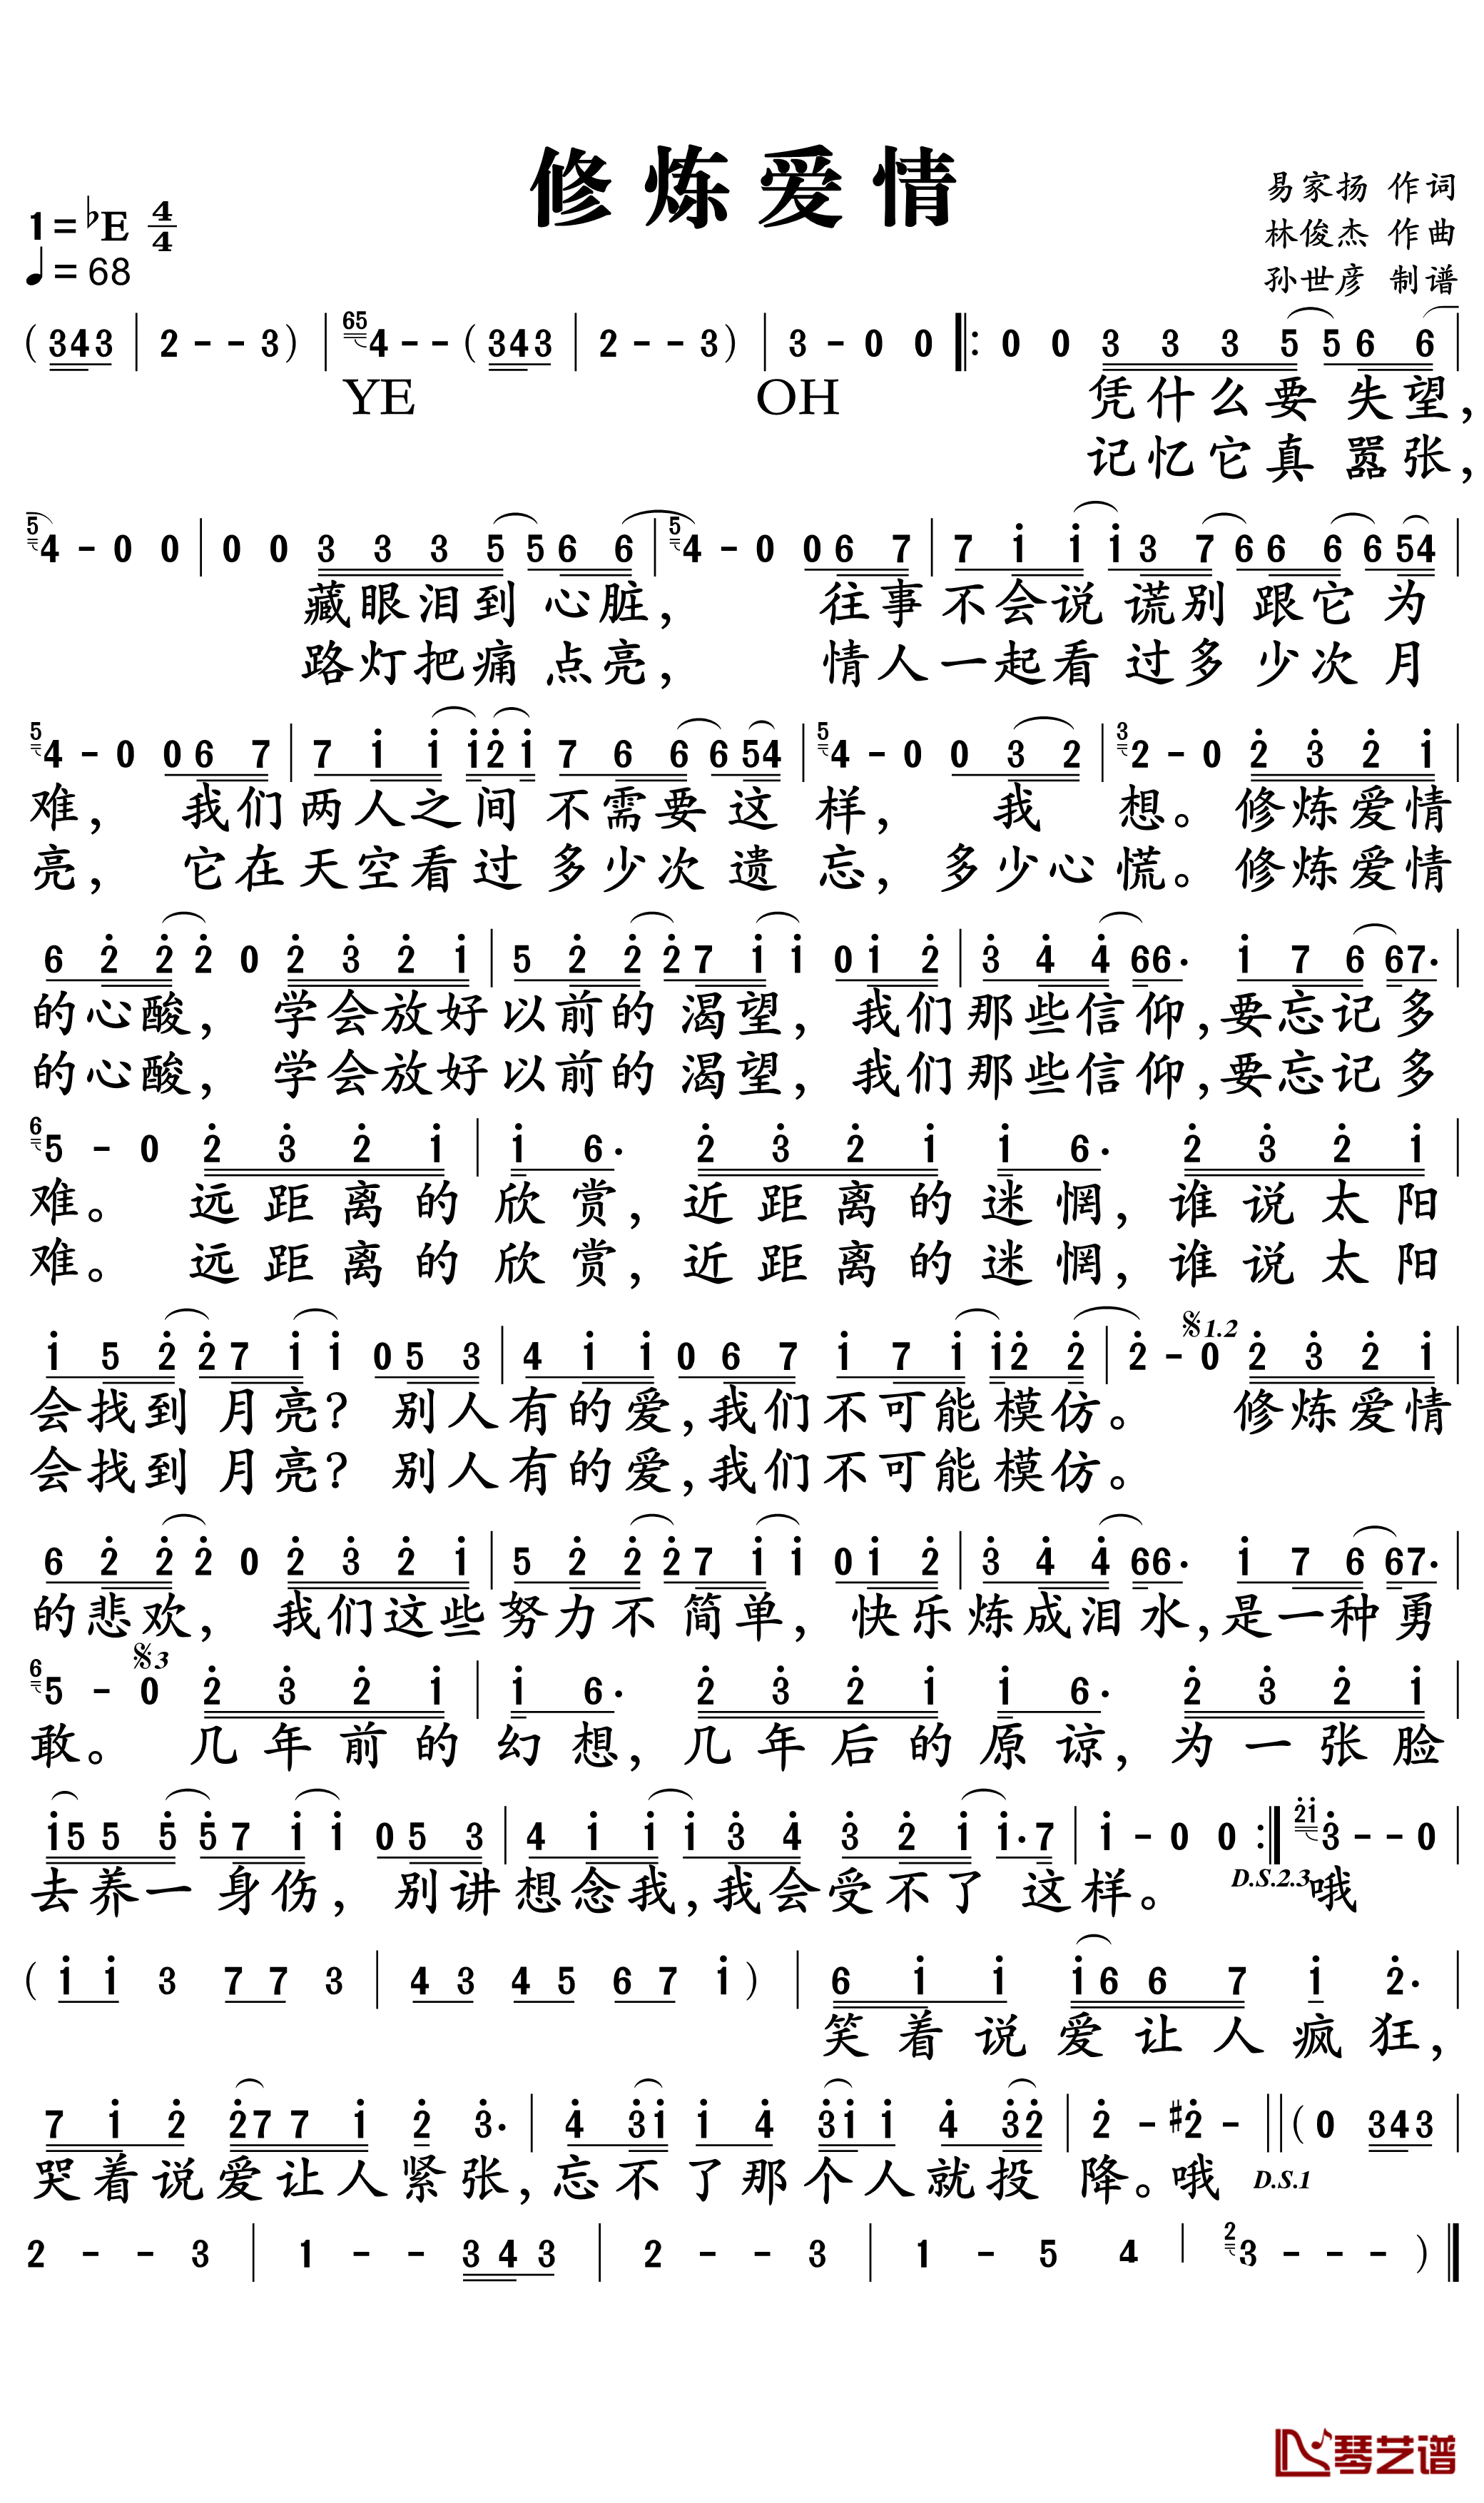 修炼爱情
易家扬 作词
林俊杰 作曲
孙世彦 制谱
1=♭E 4/4
♩=68
(343 | 2 - - 3) | 65 4 - - (343 | 2 - - 3) | 3 - 0 0 ‖: 0 0 3 3 3 5 5 6 6 |
YE OH 凭什么要失望，
记忆它真嚣张，
5 4 - 0 0 | 0 0 3 3 3 5 5 6 6 | 5 4 - 0 0 6 7 | 7 i i i 3 7 6 6 6 6 5 4 |
藏眼泪到心脏， 往事不会说谎别跟它为
路灯把痛点亮， 情人一起看过多少次月
5 4 - 0 0 6 7 | 7 i i i 2̇ i 7 6 6 6 5 4 | 5 4 - 0 0 3 2 | 3 2 - 0 2̇ 3̇ 2̇ i |
难， 我们两人之间不需要这样， 我想。修炼爱情
亮， 它在天空看过多少次遗忘， 多少心慌。修炼爱情
6 2̇ 2̇ 2̇ 0 2̇ 3̇ 2̇ i | 5 2̇ 2̇ 2̇ 7 i i 0 i 2̇ | 3̇ 4̇ 4̇ 6 6. i 7 6 6 7. |
的心酸， 学会放好以前的渴望， 我们那些信仰，要忘记多
的心酸， 学会放好以前的渴望， 我们那些信仰，要忘记多
6 5 - 0 2̇ 3̇ 2̇ i | i 6. 2̇ 3̇ 2̇ i i 6. 2̇ 3̇ 2̇ i |
难。 远距离的欣赏，近距离的迷惘，谁说太阳
难。 远距离的欣赏，近距离的迷惘，谁说太阳
𝄋1.2
i 5 2̇ 2̇ 7 i i 0 5 3 | 4 i i 0 6 7 i 7 i i 2̇ 2̇ | 2̇ - 0 2̇ 3̇ 2̇ i |
会找到月亮？别人有的爱，我们不可能模仿。 修炼爱情
会找到月亮？别人有的爱，我们不可能模仿。
6 2̇ 2̇ 2̇ 0 2̇ 3̇ 2̇ i | 5 2̇ 2̇ 2̇ 7 i i 0 i 2̇ | 3̇ 4̇ 4̇ 6 6. i 7 6 6 7. |
的悲欢， 我们这些努力不简单， 快乐炼成泪水，是一种勇
𝄋3
6 5 - 0 2̇ 3̇ 2̇ i | i 6. 2̇ 3̇ 2̇ i i 6. 2̇ 3̇ 2̇ i |
敢。 几年前的幻想，几年后的原谅，为一张脸
i 5 5 5̇ 5̇ 7 i i 0 5 3 | 4 i i i 3̇ 4̇ 3̇ 2̇ i i. 7 | i - 0 0 :‖ 2̇i 3̇ - - 0 |
去养一身伤， 别讲想念我，我会受不了这样。 D.S.2.3 哦
( i i 3 7 7 3 | 4 3 4 5 6 7 i ) | 6 i i i 6 6 7 i 2̇. |
笑着说爱让人疯狂，
7 i 2̇ 2̇ 7 7 i 2̇ 3̇. | 4̇ 3̇ i i 4̇ 3̇ i i 4̇ 3̇ 2̇ | 2̇ - #2̇ - ‖ ( 0 3 4 3 |
哭着说爱让人紧张，忘不了那个人就投降。哦 D.S.1
2 - - 3 | 1 - - 3 4 3 | 2 - - 3 | 1 - 5 4 | 2 3 - - - ) ‖
琴艺谱